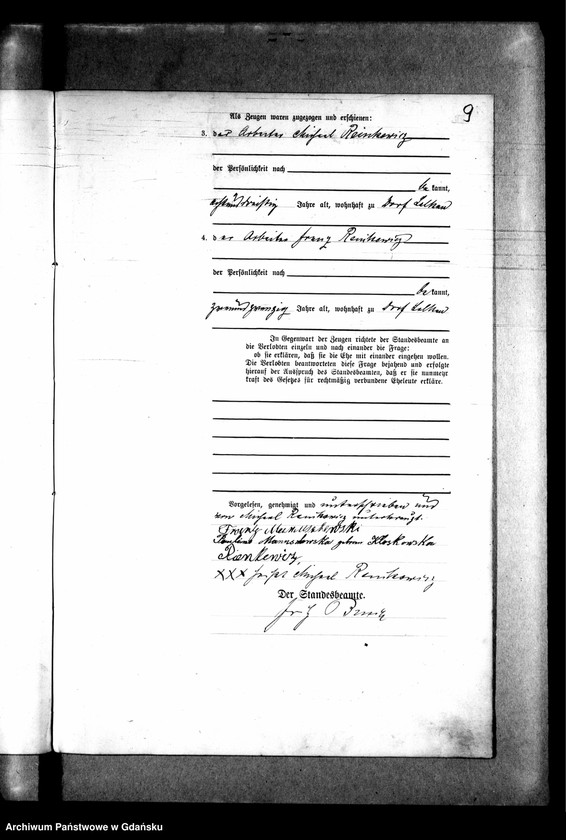 9
Als Zeugen waren zugezogen und erschienen:
3. der Arbeiter Michael Reinkewicz
der Persönlichkeit nach
bekannt,
achtunddreißig Jahre alt, wohnhaft zu Dorf Lelkau
4. der Arbeiter Franz Renikewicz
der Persönlichkeit nach
bekannt,
zweiundzwanzig Jahre alt, wohnhaft zu Dorf Lelkau
In Gegenwart der Zeugen richtete der Standesbeamte an
die Verlobten einzeln und nach einander die Frage:
ob sie erklären, daß sie die Ehe mit einander eingehen wollen.
Die Verlobten beantworteten diese Frage bejahend und erfolgte
hierauf der Ausspruch des Standesbeamten, daß er sie nunmehr
kraft des Gesetzes für rechtmäßig verbundene Eheleute erkläre.
Vorgelesen, genehmigt und unterschrieben und
von Michael Renikewicz unterkreuzt.
Franz
Pauline geboren Kloskowska
Rankewicz,
XXX Michael Renikewicz
Der Standesbeamte.
Archiwum Państwowe w Gdańsku